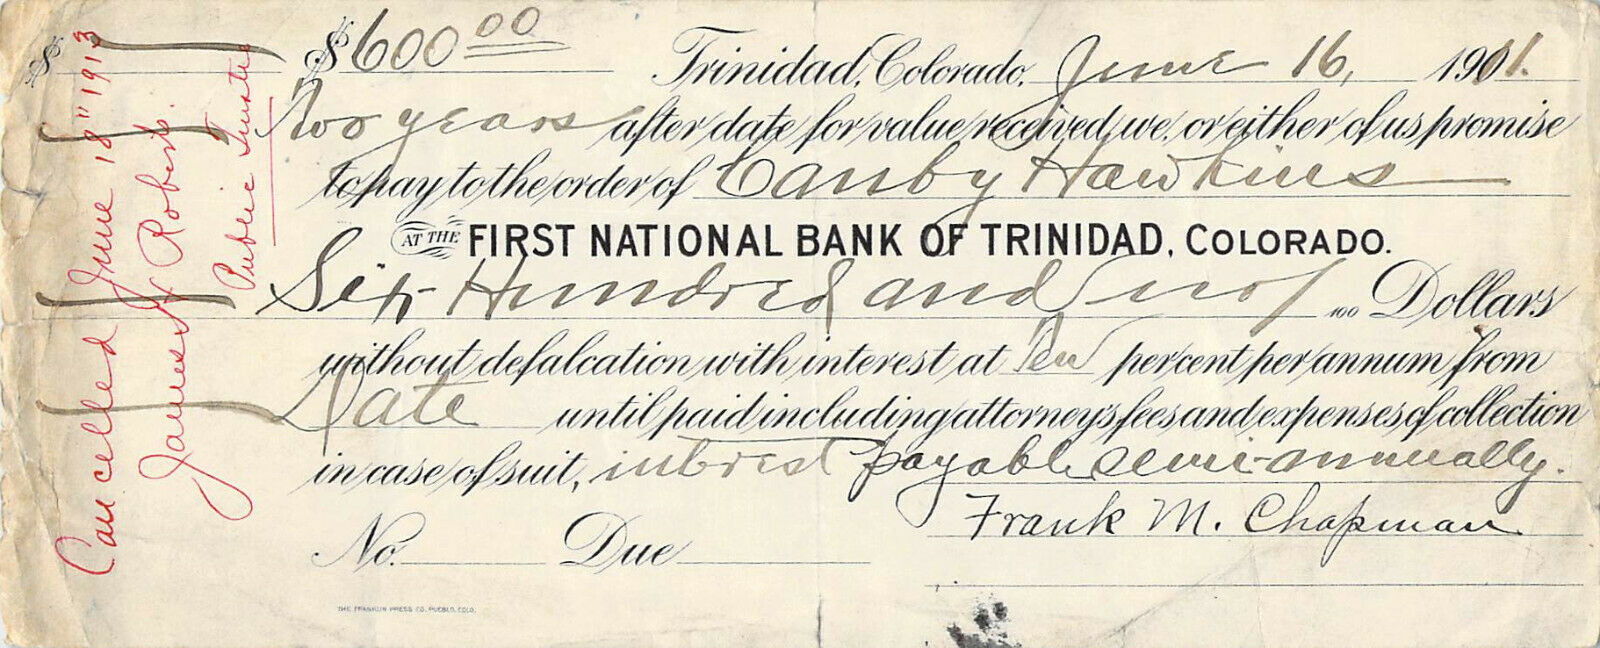 $
$600 00
Trinidad, Colorado, June 16, 1911.
Two years after date for value received, we or either of us promise
to pay to the order of Canby Hawkins
AT THE FIRST NATIONAL BANK OF TRINIDAD, COLORADO.
Six Hundred and no/100 Dollars
without defalcation with interest at Ten per cent per annum from
Date until paid including attorney's fees and expenses of collection
in case of suit, interest payable semi-annually.
Frank M. Chapman
No. Due
THE FRANKLIN PRESS CO. PUEBLO, COLO.
Cancelled June 18" 1913
James Roberts.
Public Trustee